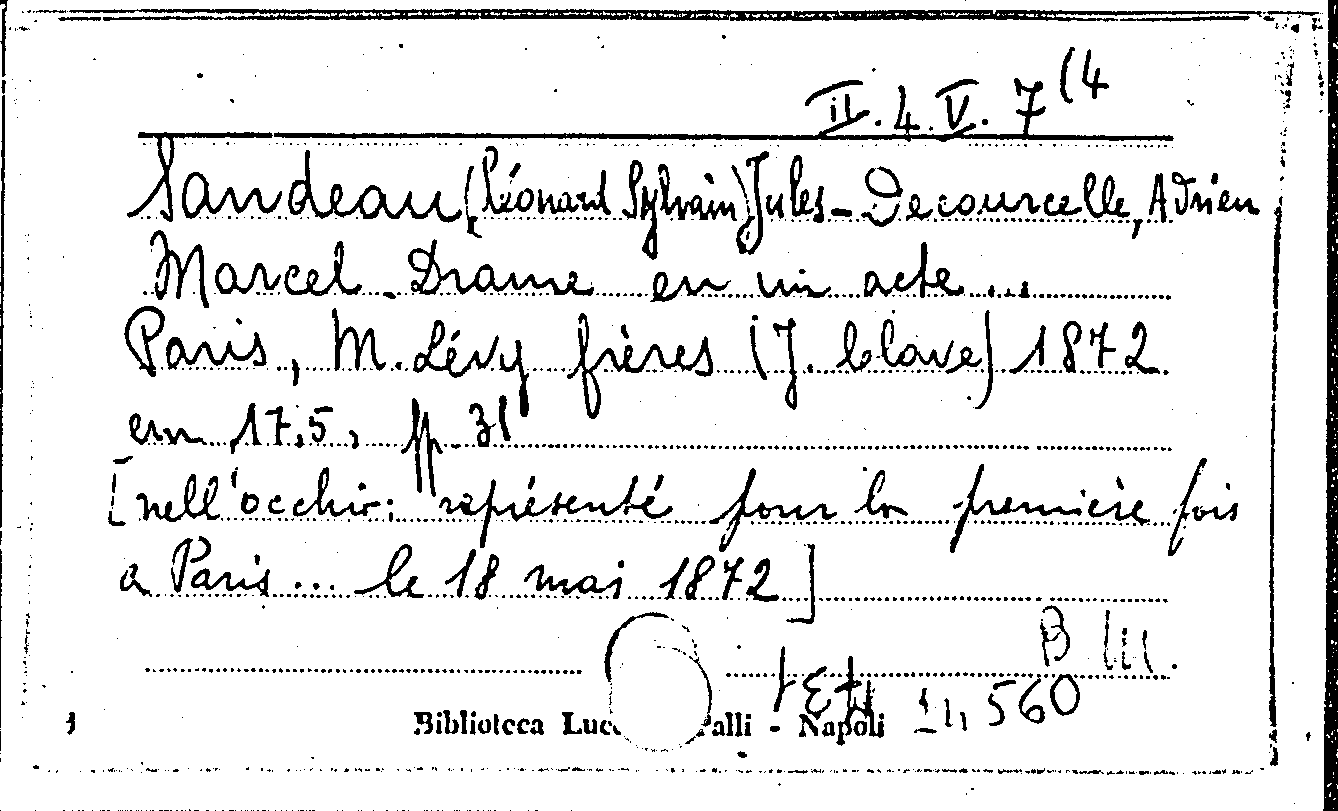 II. 4. V. 7 (4
Sandeau, (Léonard Sylvain) Jules - Decourcelle, Adrien
Marcel - Drame en un acte...
Paris, M. Lévy frères (J. Claye) 1872
cm 17,5, pp. 31
[nell'occhio: représenté pour la première fois
a Paris ... le 18 mai 1872]
B III.
560
Biblioteca Palli - Napoli